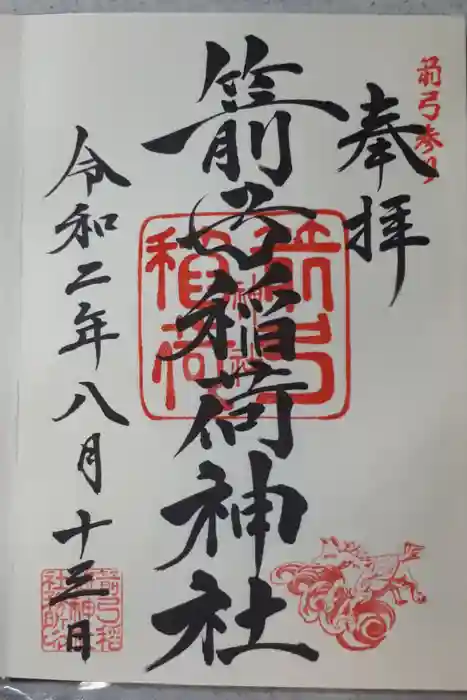 箭弓参り
奉拝
箭弓稲荷神社
箭弓稲荷神社
令和二年八月十三日